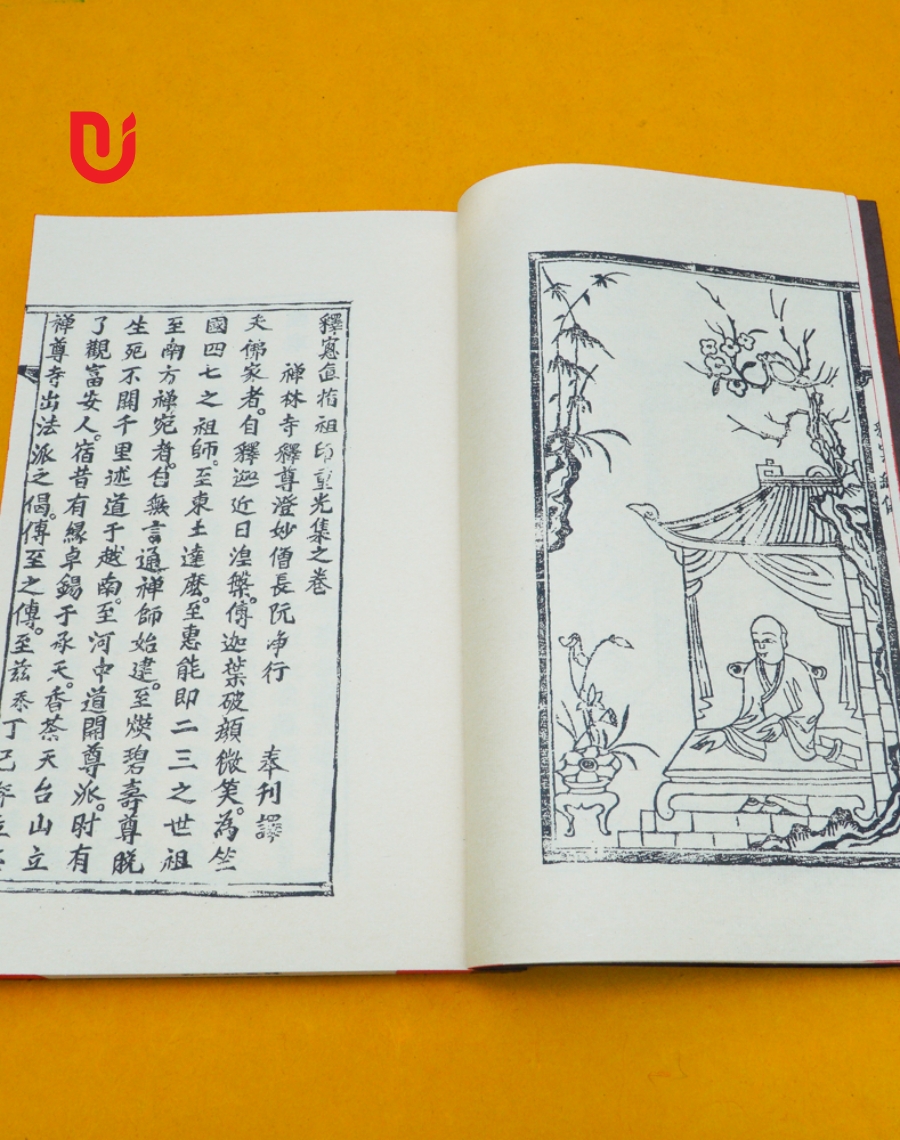 釋窓直指祖印重光集之卷
禅林寺釋尊澄妙僧長阮净行 奉刊譯
夫佛家者。自釋迦近日湟槃。傳迦葉破顔微笑。為竺
國四七之祖師。至東土達麽。至惠能即二三之世祖
至南方禅宛者。自無言通禅師始建。至煐碧壽尊脱
生死不関千里述道于越南。至河中道開尊派。时有
了觀富安人。宿昔有縁卓錫于承天。香茶天台山立
禅尊寺出法派之偈。傳至之傳。至茲忝丁巳